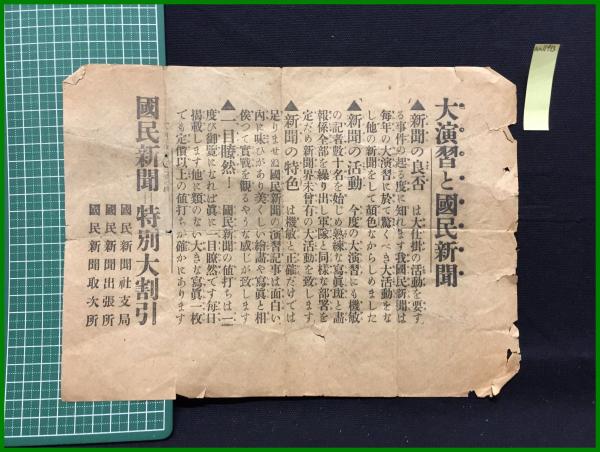 大演習と國民新聞
▲新聞の良否 は大仕掛の活動を要す
る事件の起る度に知れます我國民新聞は
毎年の大演習に於て驚くべき大活動をな
し他の新聞をして顏色なからしめました
▲新聞の活動 今度の大演習にも機敏
の記者數十名を始じめ熟練な寫眞班と畵
報係全部を繰り出し軍隊と同樣な部署を
定だめ新聞界未曾有の大活動を致します
▲新聞の特色 は機敏と正確だけでは
足りませぬ國民新聞の演習記事は面白い
內に味ひがあり美くしい繪畵や寫眞と相
俟つて實戰を觀るやうな感じが致します
▲一目瞭然! 國民新聞の値打ちは一
度び御覧になれば眞に一目瞭然です每日
揭載します他に類のない大きな寫眞一枚
でも定價以上の値打ちが確かにあります
國民新聞=特別大割引
國民新聞社支局
國民新聞出張所
國民新聞取次所